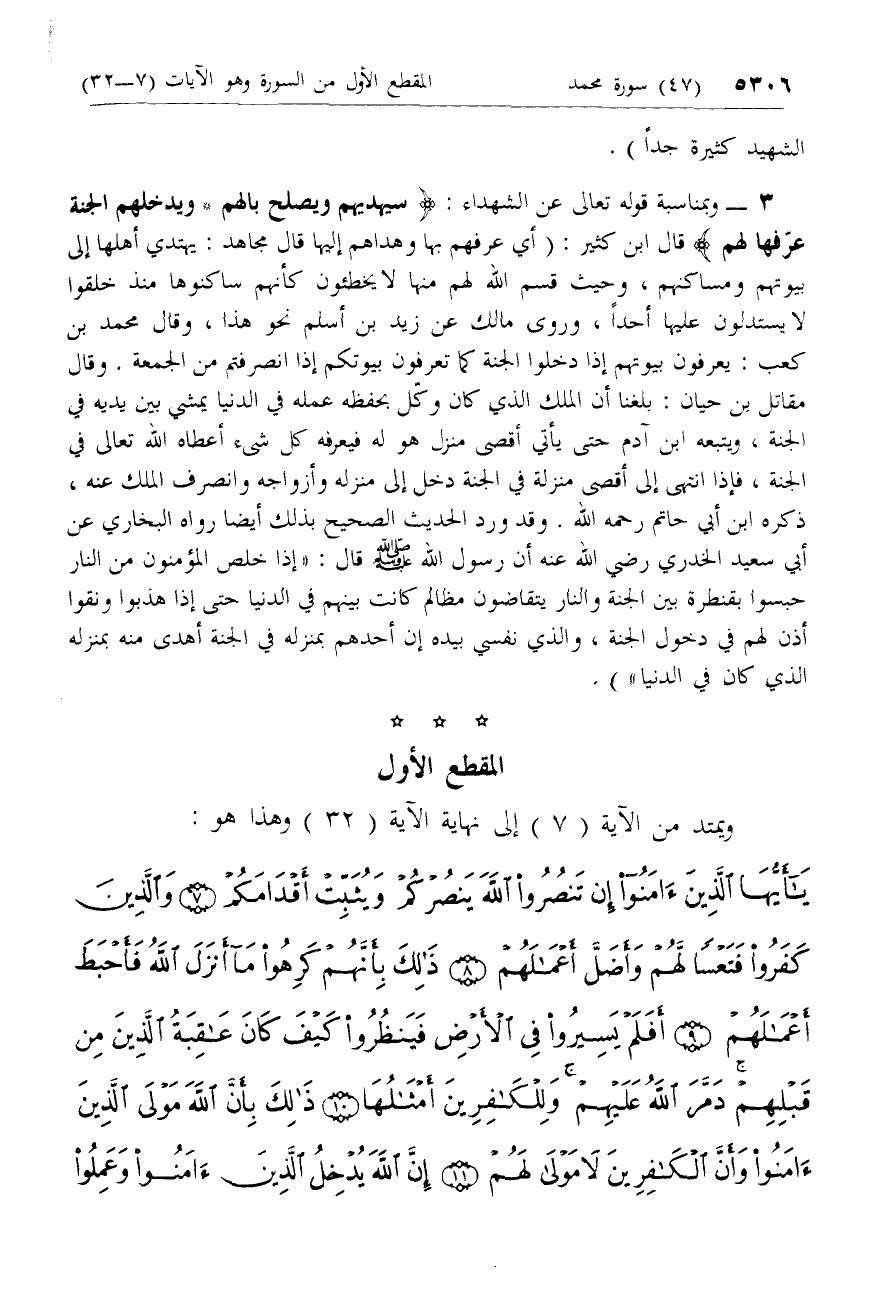 ٥٣٠٦ (٤٧) سورة محمد المقطع الأول من السورة وهو الآيات (٧—٣٢)
الشهيد كثيرة جداً ) .
٣ — وبمناسبة قوله تعالى عن الشهداء : ﴿ سيهديهم ويصلح بالهم * ويدخلهم الجنة
عرّفها لهم ﴾ قال ابن كثير : ( أي عرفهم بها وهداهم إليها قال مجاهد : يهتدي أهلها إلى
بيوتهم ومساكنهم ، وحيث قسم الله لهم منها لا يخطئون كأنهم ساكنوها منذ خلقوا
لا يستدلون عليها أحداً ، وروى مالك عن زيد بن أسلم نحو هذا ، وقال محمد بن
كعب : يعرفون بيوتهم إذا دخلوا الجنة كما تعرفون بيوتكم إذا انصرفتم من الجمعة . وقال
مقاتل بن حيان : بلغنا أن الملك الذي كان وكّل بحفظه عمله في الدنيا يمشي بين يديه في
الجنة ، ويتبعه ابن آدم حتى يأتي أقصى منزل هو له فيعرفه كل شيء أعطاه الله تعالى في
الجنة ، فإذا انتهى إلى أقصى منزلة في الجنة دخل إلى منزله وأزواجه وانصرف الملك عنه ،
ذكره ابن أبي حاتم رحمه الله . وقد ورد الحديث الصحيح بذلك أيضا رواه البخاري عن
أبي سعيد الخدري رضي الله عنه أن رسول الله ﷺ قال : «إذا خلص المؤمنون من النار
حبسوا بقنطرة بين الجنة والنار يتقاضون مظالم كانت بينهم في الدنيا حتى إذا هذبوا ونقوا
أذن لهم في دخول الجنة ، والذي نفسي بيده إن أحدهم بمنزله في الجنة أهدى منه بمنزله
الذي كان في الدنيا» ) .
☆ ☆ ☆
المقطع الأول
ويمتد من الآية ( ٧ ) إلى نهاية الآية ( ٣٢ ) وهذا هو :
يَٰٓأَيُّهَا ٱلَّذِينَ ءَامَنُوٓا۟ إِن تَنصُرُوا۟ ٱللَّهَ يَنصُرْكُمْ وَيُثَبِّتْ أَقْدَامَكُمْ ۝٧ وَٱلَّذِينَ
كَفَرُوا۟ فَتَعْسًا لَّهُمْ وَأَضَلَّ أَعْمَٰلَهُمْ ۝٨ ذَٰلِكَ بِأَنَّهُمْ كَرِهُوا۟ مَآ أَنزَلَ ٱللَّهُ فَأَحْبَطَ
أَعْمَٰلَهُمْ ۝٩ أَفَلَمْ يَسِيرُوا۟ فِى ٱلْأَرْضِ فَيَنظُرُوا۟ كَيْفَ كَانَ عَٰقِبَةُ ٱلَّذِينَ مِن
قَبْلِهِمْ ۚ دَمَّرَ ٱللَّهُ عَلَيْهِمْ ۚ وَلِلْكَٰفِرِينَ أَمْثَٰلُهَا ۝١٠ ذَٰلِكَ بِأَنَّ ٱللَّهَ مَوْلَى ٱلَّذِينَ
ءَامَنُوا۟ وَأَنَّ ٱلْكَٰفِرِينَ لَا مَوْلَىٰ لَهُمْ ۝١١ إِنَّ ٱللَّهَ يُدْخِلُ ٱلَّذِينَ ءَامَنُوا۟ وَعَمِلُوا۟